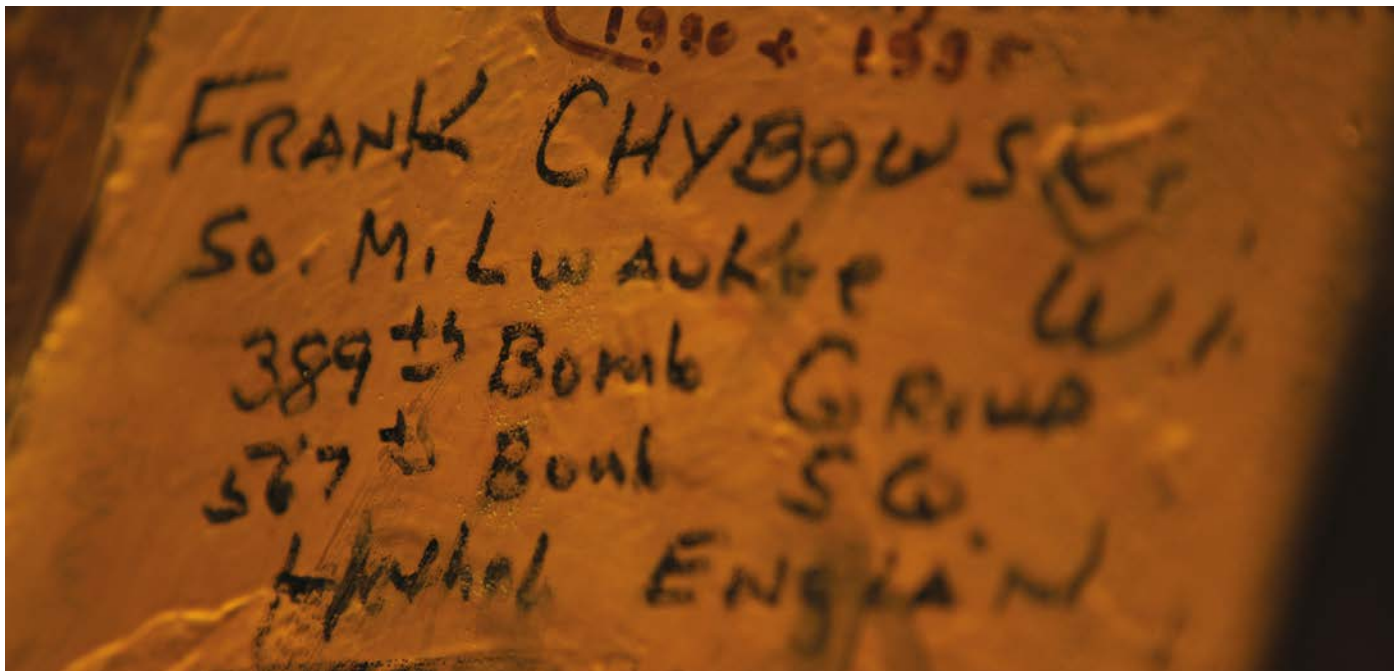 (1990 + 1995
FRANK CHYBOWSKi
So. MiLwAukee Wi.
389th Bomb GRoup
567th Bomb SQ.
Hethel ENglAN